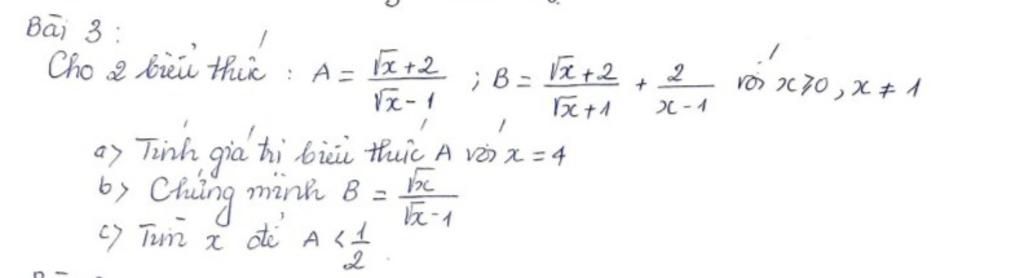 Bài 3 :
Cho 2 biểu thức : A = \frac{\sqrt{x}+2}{\sqrt{x}-1} ; B = \frac{\sqrt{x}+2}{\sqrt{x}+1} + \frac{2}{x-1} với x ⩾ 0, x ≠ 1
a) Tính giá trị biểu thức A với x = 4
b) Chứng minh B = \frac{\sqrt{x}}{\sqrt{x}-1}
c) Tìm x để A < \frac{1}{2}